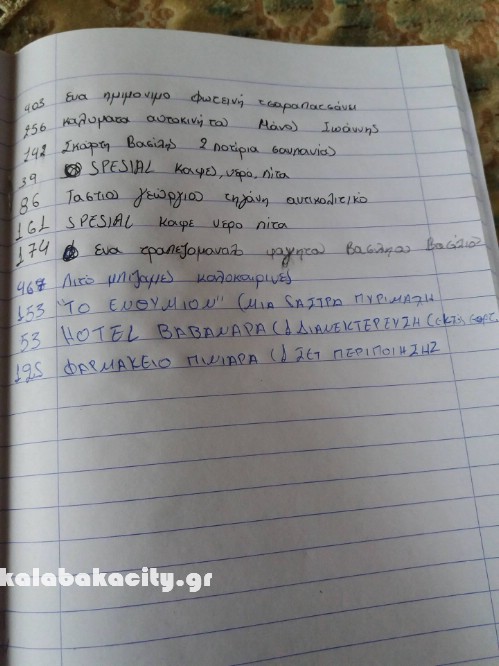 403 ένα ημιμόνιμο φωτεινή τσαραπατσάνη
256 καλύματα αυτοκινήτου Μάνος Ιωάννης
242 Σκάρτη Βασίλης 2 ποτήρια σαμπάνια
39 SPESIAL καφες, νερο, πιτα
86 Γεώργιος τηγάνη αντικολιτικό
161 SPESIAL καφε νερο πιτα
174 ένα τραπεζομάντηλο φαγητού Βασίλης
467 Λιτό μπιζάμες καλοκαιρινές
153 "ΤΟ ΕΝΘΥΜΙΟΝ" (ΜΙΑ ΓΑΣΤΡΑ ΠΥΡΙΜΑΧΗ
53 HOTEL ΒΑΒΑΝΑΡΑ (1 ΔΙΑΝΕΚΤΕΡΕΥΣΗ (ΕΚΤΟΣ
125 ΦΑΡΜΑΚΕΙΟ ΠΙΝΙΑΡΑ (1 ΣΕΤ ΠΕΡΙΠΟΙΗΣΗΣ
kalabakacity.gr